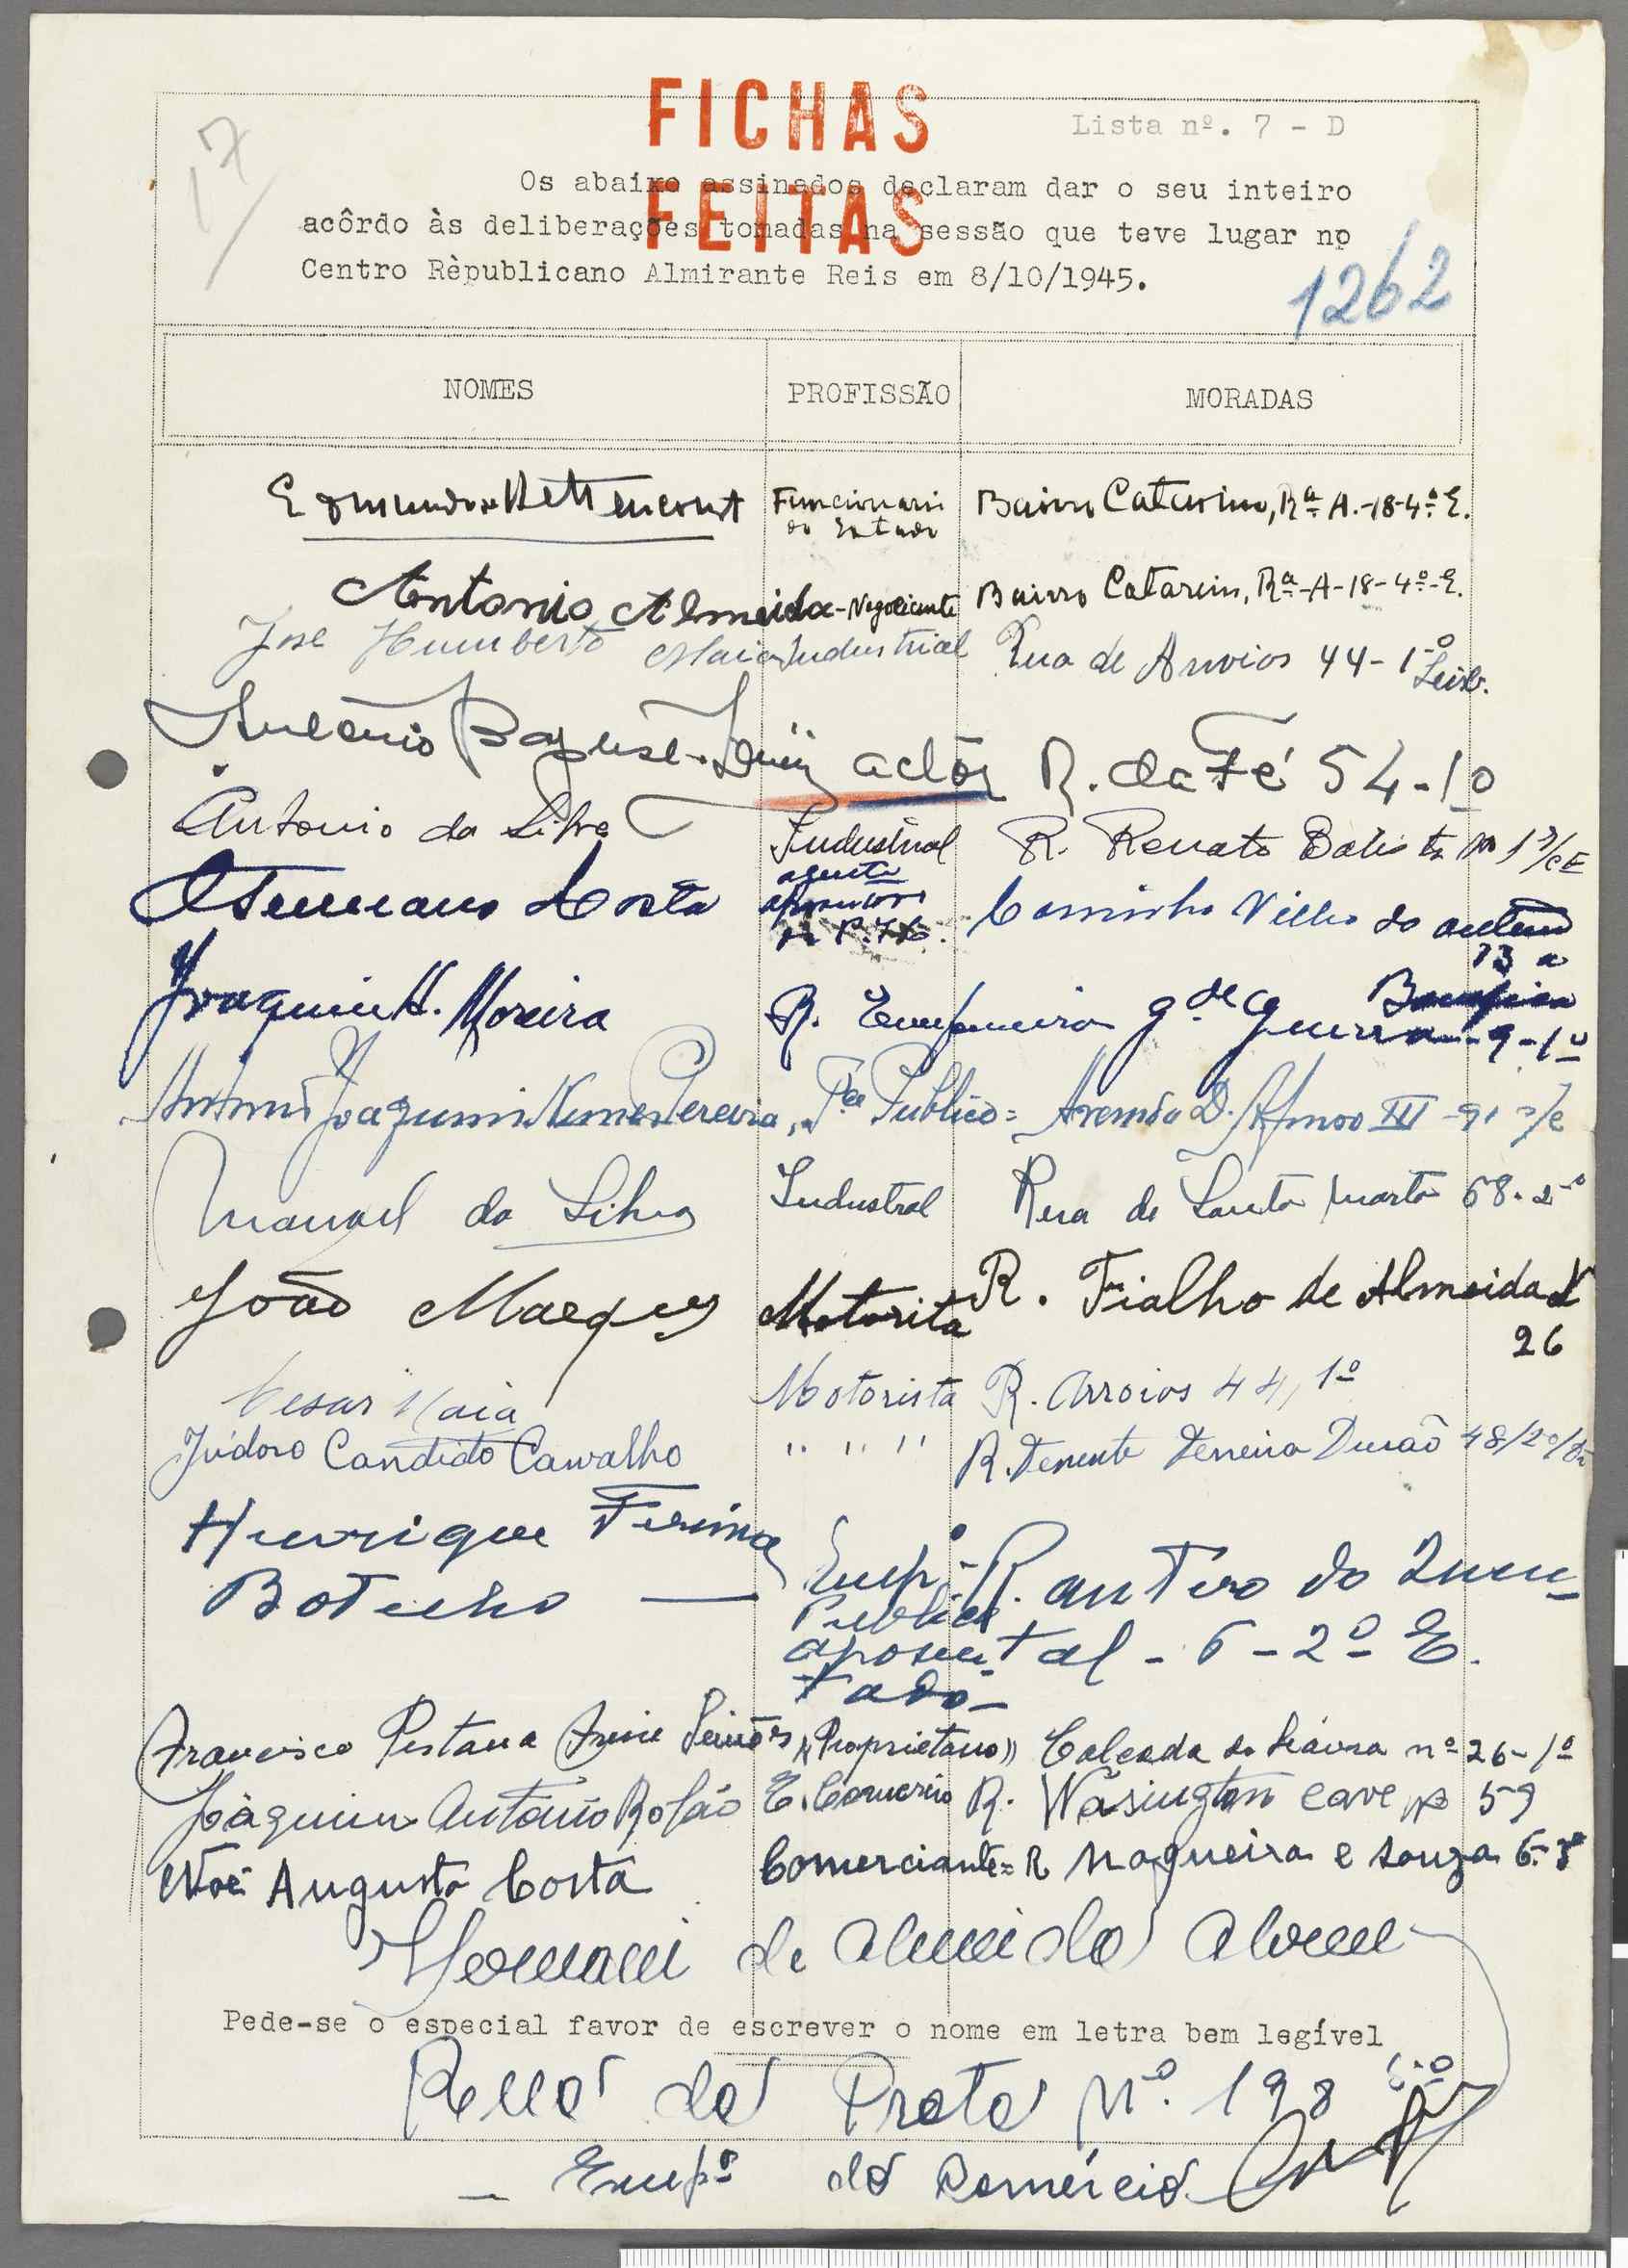 FICHAS
FEITAS
17
Lista nº. 7 - D
Os abaixo assinados declaram dar o seu inteiro
acôrdo às deliberações tomadas na sessão que teve lugar no
Centro Rèpublicano Almirante Reis em 8/10/1945.
1262
NOMES PROFISSÃO MORADAS
Edmundo Bettencourt Funcionario do Estado Bairro Catarino, Rª A.-18-4º E.
Antonio Almeida - Negociante Bairro Catarino, Rª-A-18-4º-E.
José Humberto Maia Industrial Rua de Arroios 44-1º Lisb.
António actôr R. da Fé 54-1º
Antonio da Silva Industrial R. Renato Batista
Germano Costa agente Caminho Velho do
Joaquim H. Moreira R. gde Guerra - 9-1º
Antonio Joaquim Nunes Pereira, Publico = Avenida D. Afonso III
Manuel da Silva Industral Rua de Santa Marta 68-2º
João Marques Motorita R. Fialho de Almeida N
26
Cesar Maia Motorista R. Arroios 44, 1º
Isidoro Candido Carvalho " " " R. Tenente Ferreira Durão 48/2º/
Henrique
Botelho — Empº Publico R. Antero do Quen-
aposen-tado tal - 6 - 2º E.
Francisco Pestana Freire "Proprietario" Calçada do Lavra nº 26-1º
Joaquim Antonio Rofão E. Comercio R. Wasington cave nº 59
Noé Augusto Costa Comerciante = R Nogueira e Souza 6-3º
Hernani de Almeida
Pede-se o especial favor de escrever o nome em letra bem legível
Rua da Prata Nº. 198
- Empº do Comércio